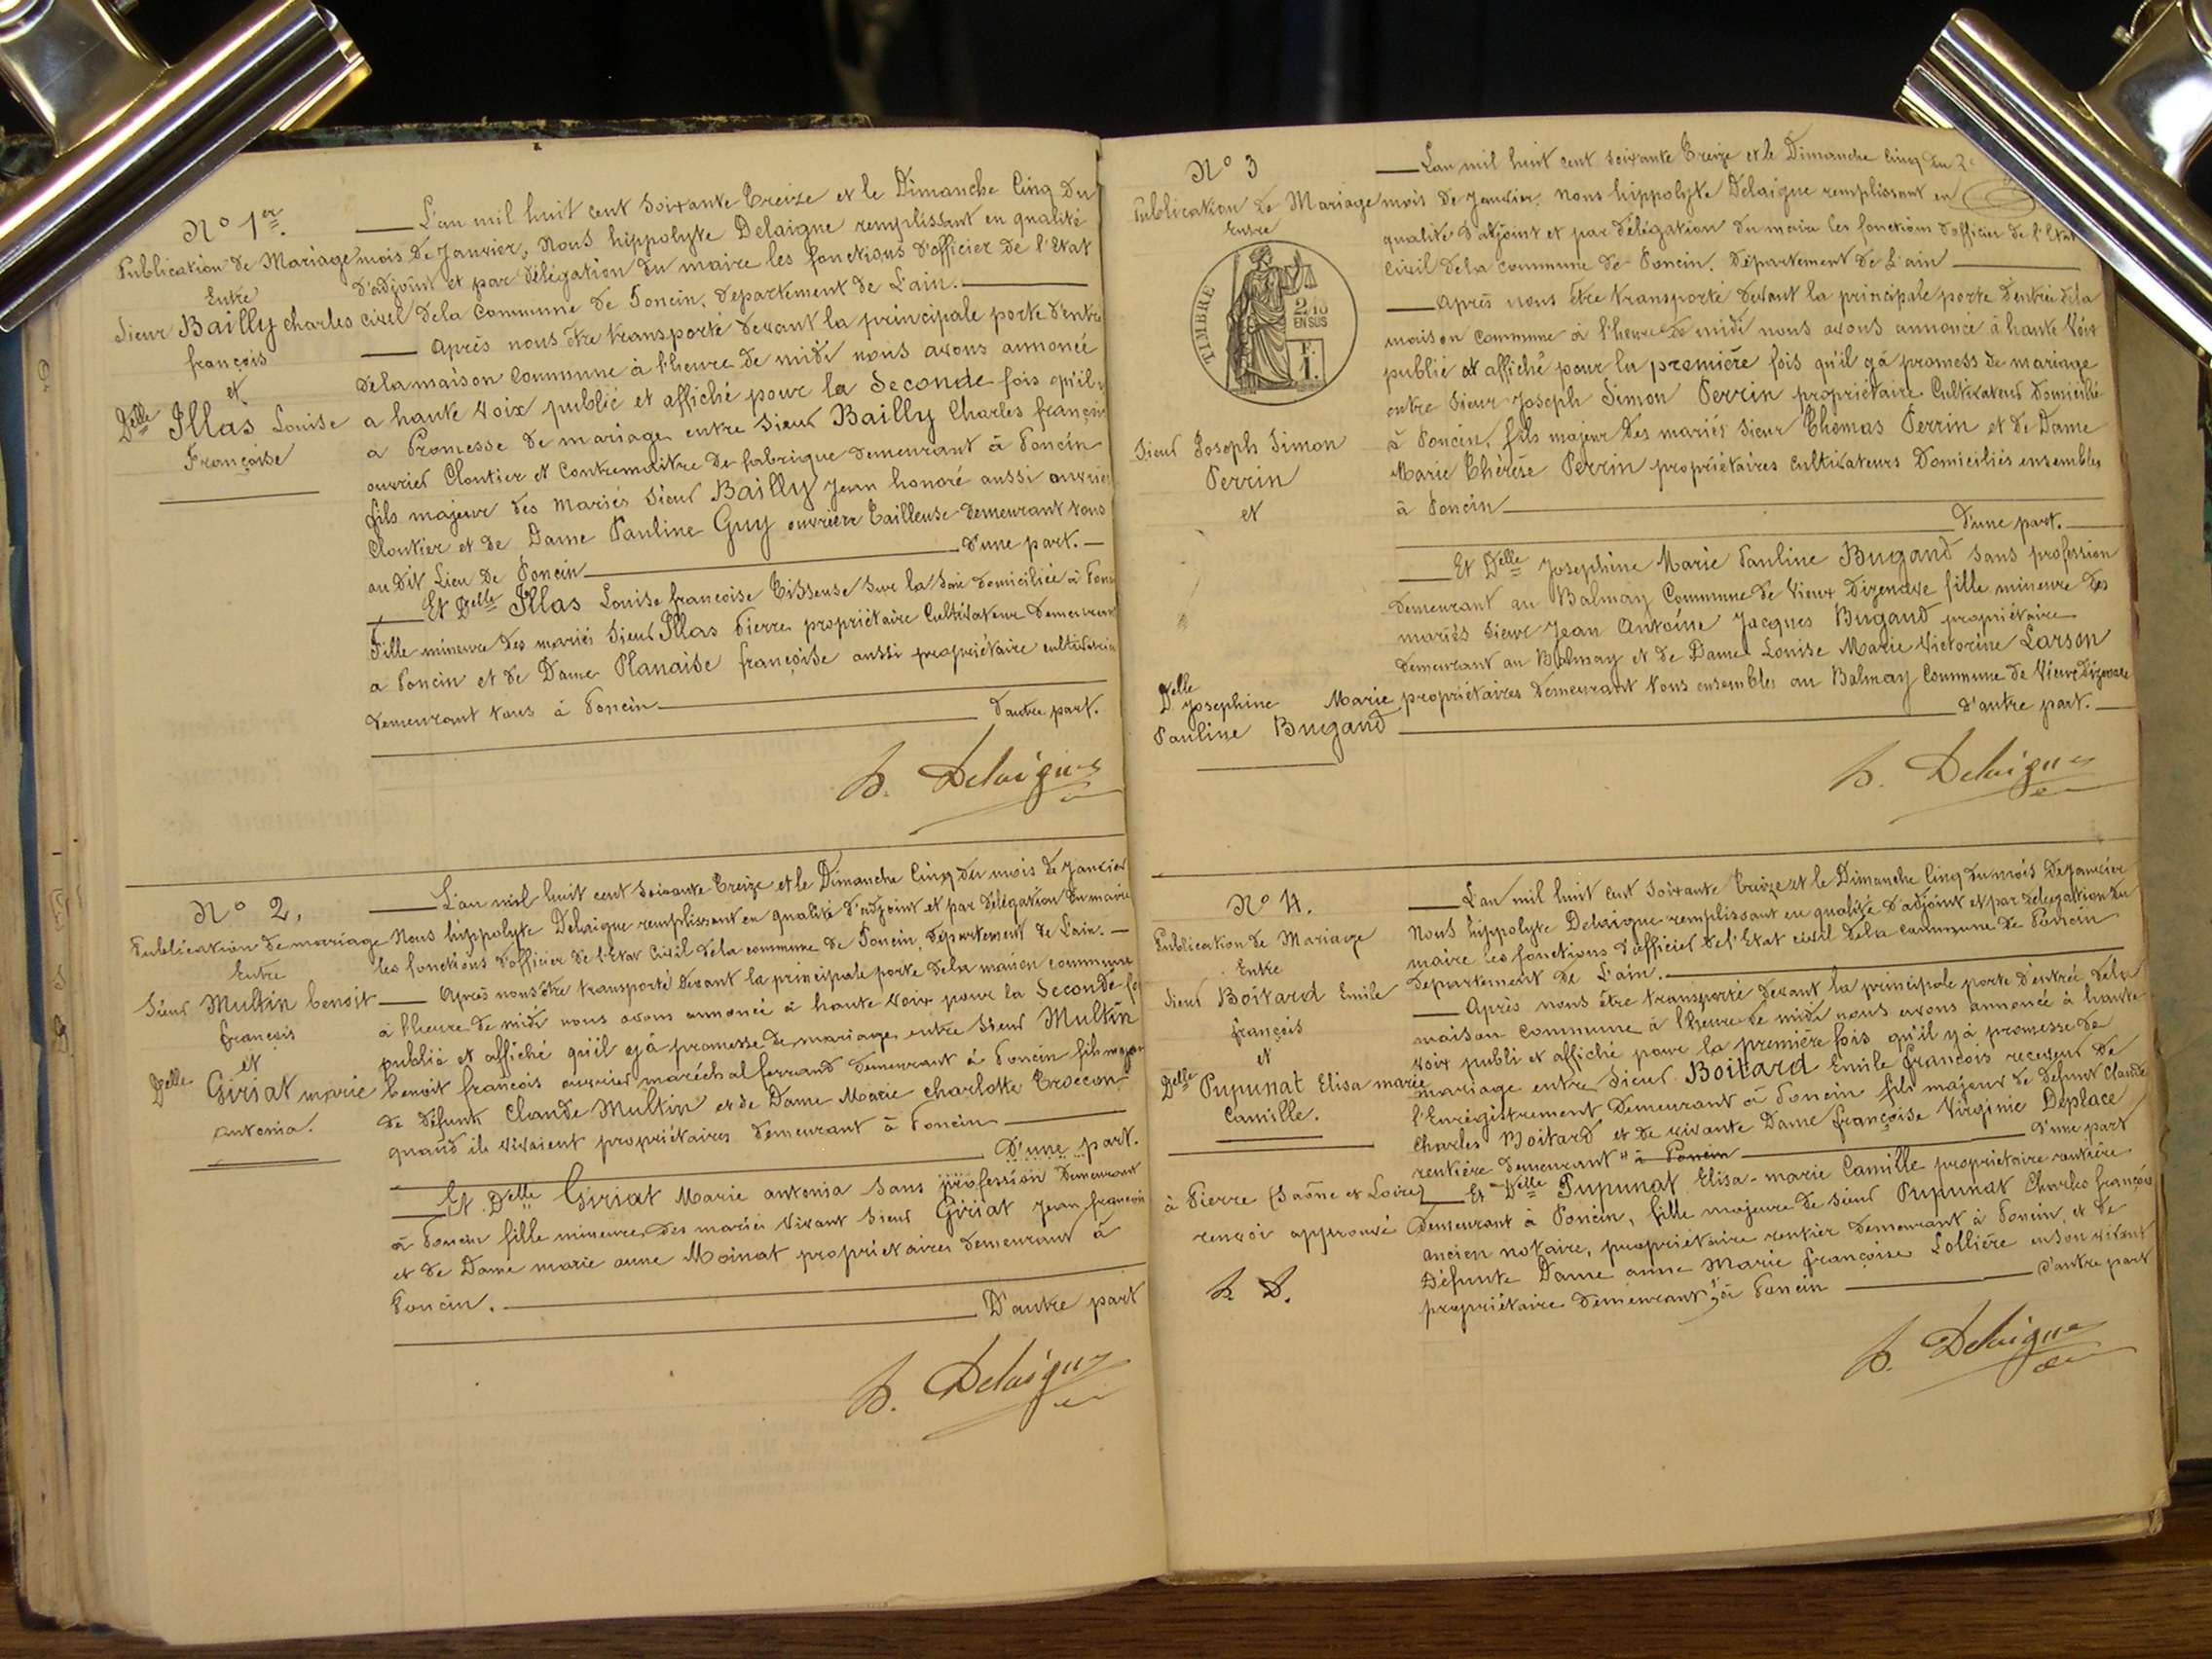 N° 1er.
Publication de Mariage
Entre
Sieur Bailly charles
françois
et
Delle Illas Louise
Françoise
L'an mil huit cent soixante Treize et le Dimanche Cinq du
mois de Janvier, Nous hippolyte Delaigue remplissant en qualité
d'adjoint et par délégation du maire les fonctions d'officier de l'Etat
civil dela Commune de Poncin, département de L'ain.
Après nous être transporté devant la principale porte d'entré
dela maison Commune à l'heure de midi nous avons annoncé
a haute voix publié et affiché pour la Seconde fois qu'il y
a Promesse de mariage entre Sieur Bailly Charles françois
ouvrier Cloutier et Contremaitre de fabrique demeurant à Poncin
fils majeur des Mariés Sieur Bailly Jean honoré aussi ouvrier
Cloutier et de Dame Pauline Guy ouvrière Tailleuse demeurant tous
au dit Lieu de Poncin
d'une part.
Et Delle Illas Louise francoise Tisseuse sur la soie domiciliée à Poncin
Fille mineure des mariés Sieur Illas Pierre propriétaire Cultivateur demeurant
a Poncin et de Dame Planaise françoise aussi propriétaire cultivatrice
demeurant tous à Poncin
d'autre part.
h. Delaigue
N° 2.
Publication de mariage
Entre
Sieur Multin benoit
françois
et
Delle Giriat marie
antonia.
L'an mil huit cent soixante Treize et le Dimanche Cinq du mois de Janvier
Nous hippolyte Delaigue remplissant en qualité d'adjoint et par délégation du maire
les fonctions d'officier de l'Etat Civil dela commune de Poncin, département de L'ain.
Après nous être transporté devant la principale porte dela maison commune
à l'heure de midi nous avons annoncé à haute voix pour la Seconde
publié et affiché qu'il y à promesse de mariage entre Sieur Multin
benoit françois ouvrier maréchal ferrand demeurant à Poncin fils majeur
de défunts Claude Multin et de Dame Marie charlotte Troccon
quand ils vivaient propriétaires demeurant à Poncin
D'une part.
Et Delle Giriat Marie antonia sans profession demeurant
à Poncin fille mineure des mariés vivant Sieur Giriat Jean françois
et de Dame marie anne Moinat propriétaires demeurant à
Poncin.
D'autre part
h. Delaigue
N° 3
Publication de Mariage
Entre
TIMBRE
2/10
EN SUS
F.
1.
Sieur Joseph Simon
Perrin
et
Delle Josephine Marie
Pauline Bugand
L'an mil huit cent soixante Treize et le Dimanche Cinq du
mois de Janvier, Nous hippolyte Delaigue remplissant en
qualité d'adjoint et par délégation du maire les fonctions d'officier de l'Etat
Civil dela commune de Poncin. Département de L'ain
Après nous être transporté devant la principale porte d'entrée dela
maison Commune à l'heure de midi nous avons annoncé à haute voix
publié et affiché pour la première fois qu'il y à promess de mariage
entre Sieur Joseph Simon Perrin propriétaire Cultivateur domicilié
à Poncin, fils majeur des mariés Sieur Thomas Perrin et de Dame
Marie Thérèse Perrin propriétaires cultivateurs Domiciliés ensembles
à Poncin
d'une part.
Et Delle Josephine Marie Pauline Bugand sans profession
demeurant au Balmay Commune de Vieux Dizenave fille mineure des
mariés Sieur Jean Antoine Jacques Bugand propriétaire
demeurant au Balmay et de Dame Louise Marie Victorine Larson
propriétaires demeurant tous ensembles au Balmay Commune de Vieux Dizenave
d'autre part.
h. Delaigue
N° 4.
Publication de Mariage
Entre
Sieur Boitard Emile
françois
et
Delle Pupunat Elisa marie
Camille.
à Pierre (Saône et Loire)
renvoi approuvé
h D.
L'an mil huit cent soixante Treize et le Dimanche Cinq du mois De Janvier
Nous hippolyte Delaigue remplissant en qualité d'adjoint et par délégation du
maire les fonctions d'officier de l'Etat civil dela commune de Poncin
département de L'ain.
Après nous être transporté devant la principale porte d'entrée dela
maison Commune à l'heure de midi nous avons annoncé à haute
voix publi et affiché pour la première fois qu'il y à promesse de
mariage entre Sieur Boitard Emile françois receveur de
l'Enregistrement demeurant à Poncin fils majeur de défunt Claude
Charles Boitard et de vivante Dame françoise Virginie Deplace
rentière demeurant " à Poncin
d'une part
Et Delle Pupunat Elisa-marie Camille propriétaire rentière
demeurant à Poncin, fille majeure de Sieur Pupunat Charles françois
ancien notaire, propriétaire rentier demeurant à Poncin, et de
Défunte Dame anne Marie françoise Lollière en son vivant
propriétaire demeurant à Poncin
d'autre part
h. Delaigue